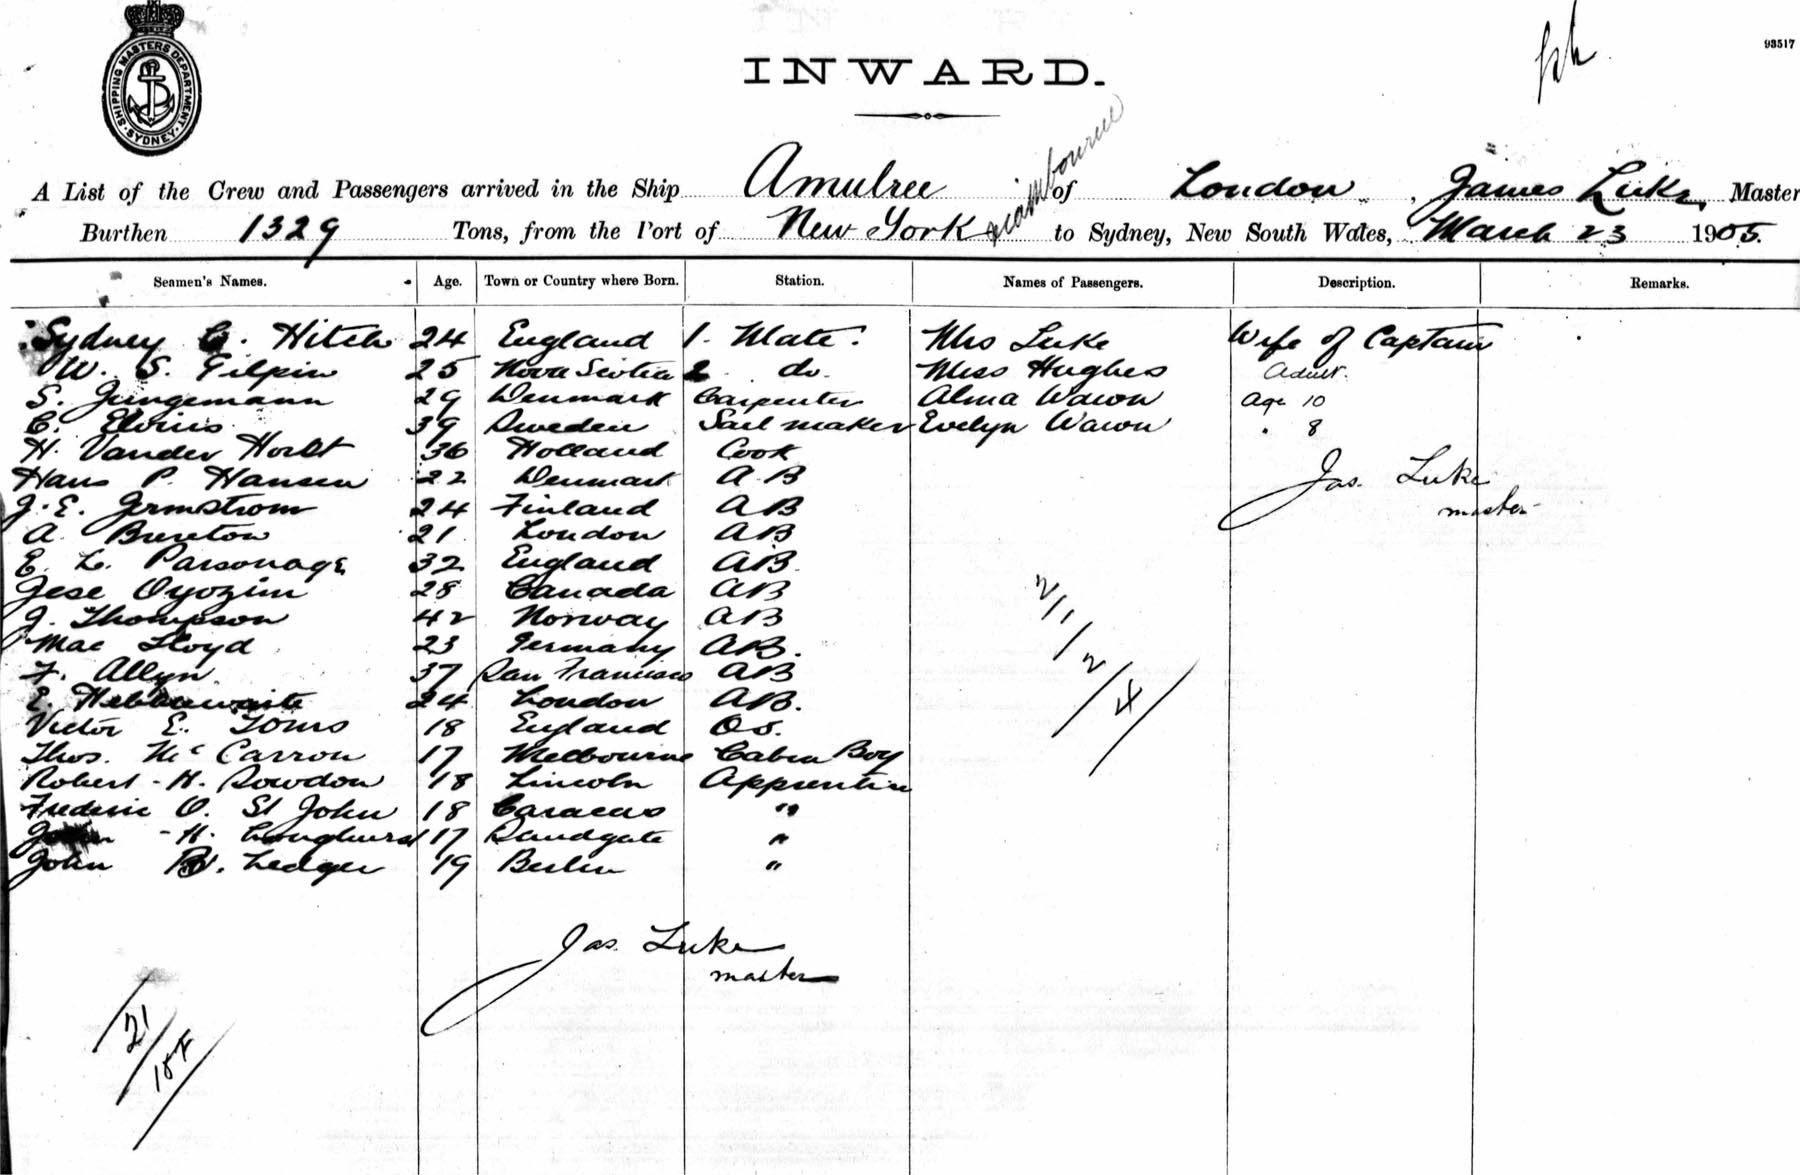 SHIPPING MASTERS DEPARTMENT
SYDNEY
93517
INWARD.
A List of the Crew and Passengers arrived in the Ship Amulree of London, James Luke, Master
Burthen 1329 Tons, from the Port of New York to Sydney, New South Wales, March 23 1905.
Seamen's Names. Age. Town or Country where Born. Station. Names of Passengers. Description. Remarks.
Sydney C. Hitch 24 England 1. Mate. Mrs Luke Wife of Captain
W. S. Gilpin 25 Nova Scotia 2 do. Miss Hughes Adult.
S. Jungemann 29 Denmark Carpenter Alma Age 10
C. 39 Sweden Sail maker Evelyn " 8
H. Vander Horst 36 Holland Cook
Hans P. Hansen 22 Denmark A B
Jas. Luke
master
J. E. Jermstrom 24 Finland A B
A. Bureton 21 London A B
E. L. Parsonage 32 England A B.
Jese Oyozim 28 Canada A B
J. Thompson 42 Norway A B
Mac Lloyd 23 Germany A B.
F. Allyn 37 San Francisco A B
E. 24 London A B.
Victor E. Toms 18 England O S.
Thos. McCarron 17 Melbourne Cabin Boy
Robert H. Sowdon 18 Lincoln Apprentice
Frederic O. St John 18 Caracas "
John H. Longhurst 17 Sandgate "
John W. Ledger 19 Berlin "
2/1/2/4
Jas. Luke
master
21/